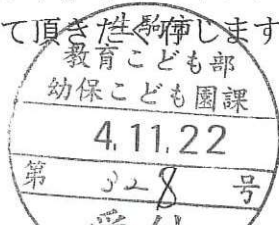 て頂きたく存じます
生駒市
教育こども部
幼保こども園課
4.11.22
第 328 号
受付